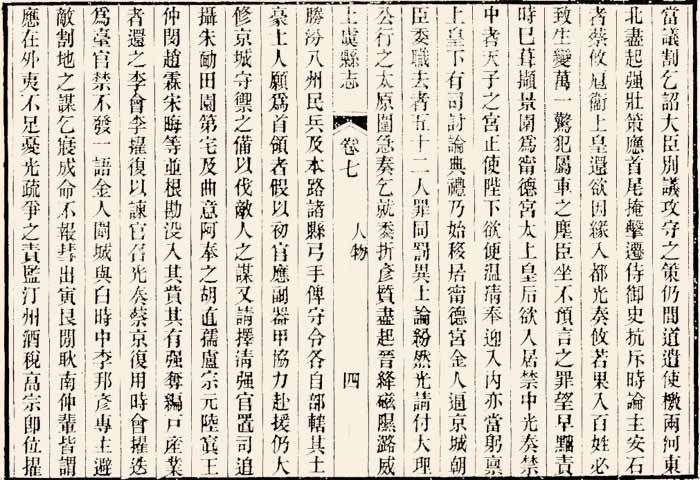 當議割乞詔大臣別議攻守之策仍間道遣使檄兩河東
北盡起強壯策應首尾掩擊遷侍御史抗斥時論主安石
者蔡攸扈衛上皇還欲因緣入都光奏攸若果入百姓必
致生變萬一驚犯屬車之塵臣坐不預言之罪望早黜責
時已葺擷景園為甯德宮太上皇后欲入居禁中光奏禁
中者天子之宮正使陛下欲便温凊奉迎入內亦當躬禀
上皇下有司討論典禮乃始移居甯德宮金人逼京城朝
臣委職去者五十二人罪同罰異士論紛然光請付大理
公行之太原圍急奏乞就委折彥質盡起晉絳磁隰潞威
上虞縣志 卷七 人物 四
勝汾八州民兵及本路諸縣弓手俾守令各自部轄其土
豪士人願為首領者假以初官應副器甲協力赴援仍大
修京城守禦之備以伐敵人之謀又請擇清强官置司追
攝朱勔田園第宅及曲意阿奉之胡直孺盧宗元陸寘王
仲閎趙霖宋晦等並根勘没入其貲其有强奪編戶產業
者還之李會李擢復以諫官召光奏蔡京復用時會擢迭
為臺官禁不發一語金人圍城與白時中李邦彥專主避
敵割地之謀乞寢成命不報彗出寅艮間耿南仲輩皆謂
應在外夷不足憂光疏爭之責監汀州酒稅高宗即位擢